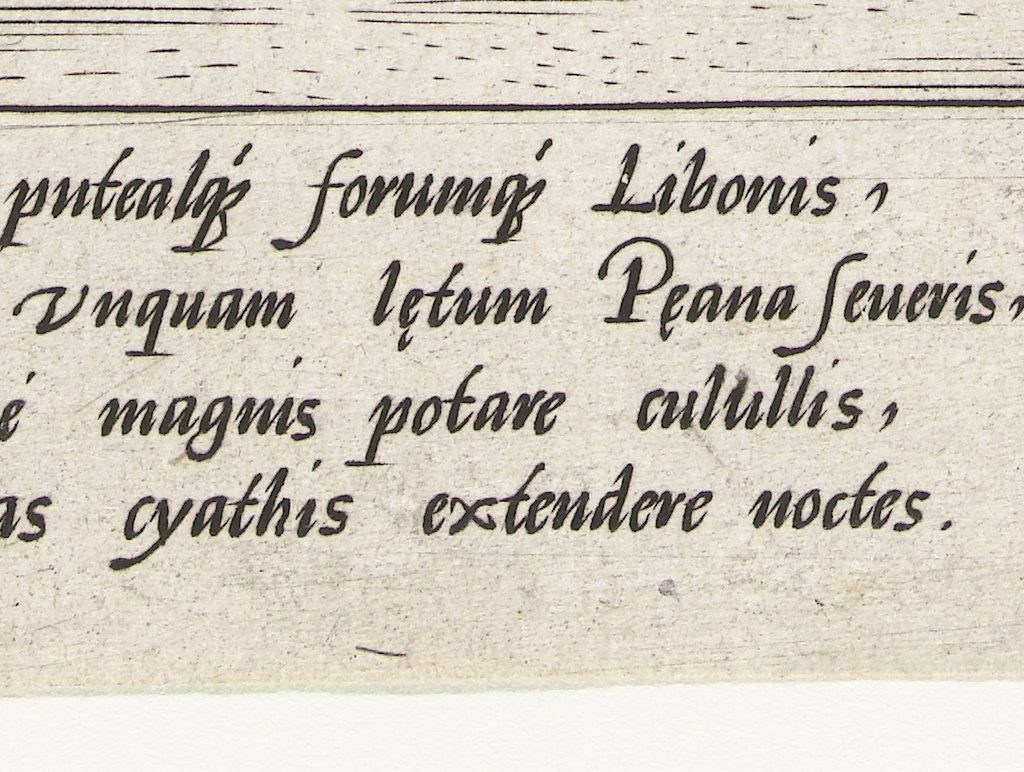 putealq́ȝ forumq́ȝ Libonis,
vnquam lętum Pęana ſeueris,
é magnis potare culullis,
as cyathis extendere noctes.